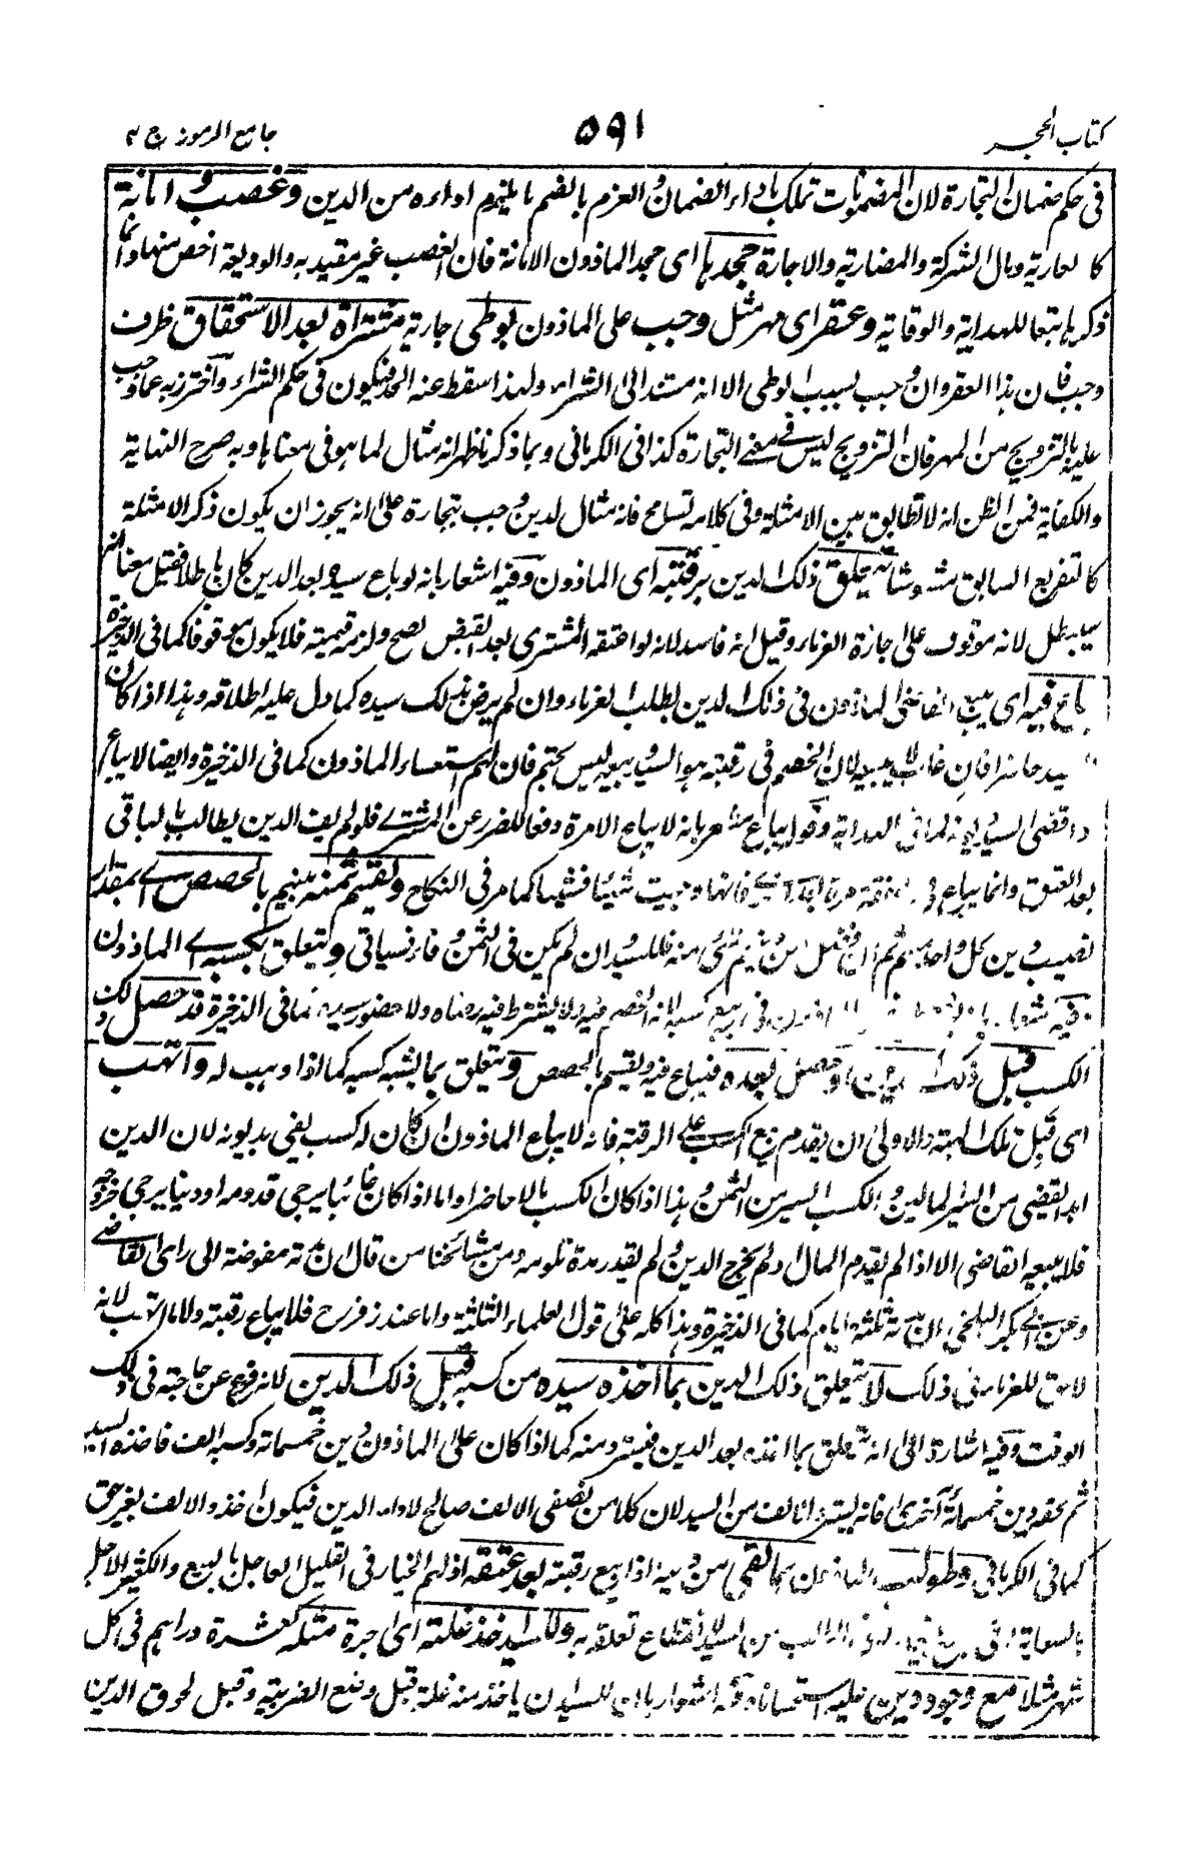 كتاب الحجر
٥٩١
جامع الرموز ج ٢
فى حكم ضمان التجارة لان المضمونات تملك باداء الضمان والغرم بالضم ما يلزم اداءه من الدين وغصب وامانة
كالعارية ومال الشركة والمضاربة والاجارة جحدها اى جحد الماذون الامانة فان الغصب غير مقيد به والوديعة اخص منها وانما
ذكرها تبعا للهداية والوقاية وعقر اى مهر مثل وجب على الماذون بوطى جارية مشتراة بعد الاستحقاق ظرف
وجب فان هذا العقر وان وجب بسبب الوطى الا انه مستند الى الشراء ولهذا سقط عنه الحد فيكون فى حكم الشراء واحترز به عما وجب
عليه بالتزويج من المهر فان التزويج ليس فى معنى التجارة كذا فى الكرمانى وبما ذكرنا ظهر انه مثال لما هو فى معناها وبه صرح النهاية
والكفاية فمن الظن انه لا تطابق بين الامثلة وفى كلامه تسامح فانه مثال لدين وجب بتجارة على انه يجوز ان يكون ذكر الامثلة
كالتفريع السابق يتعلق ذلك الدين برقبته اى الماذون وفيه اشعار بانه لو باع سيده بعد الدين كان باطلا فقيل معناه انه
سيبطل لانه موقوف على اجازة الغرماء وقيل انه فاسد لانه لو اعتقه المشترى بعد القبض لصح ولزمه قيمته فلا يكون موقوفا كما فى الذخيرة
يباع فيه اى يبيع القاضى الماذون فى ذلك الدين بطلب الغرماء وان لم يرض بذلك سيده كما دل عليه اطلاقه وهذا اذا كان
سيده حاضرا فان غاب لا يبيعه لان الخصم فى رقبته هو السيد وبيعه ليس بحتم فان لهم استسعاء الماذون كما فى الذخيرة وايضا لا يباع
يباع مشعر بانه لا يباع الا مرة دفعا للضرر عن المشترى فلو لم يف الدين يطالب بالباقى
بعد العتق وانما يباع فى النفقة مرة بعد اخرى فانها وجبت شيئا فشيئا كما مر فى النكاح ويقسم ثمنه بينهم بالحصص اى بمقدار
نصيب دين كل واحد منهم ثم ان فضل من ثمنه شئ منه فللسيد وان لم يكن فى الثمن وفاء فسياتى ويتعلق بكسبه اى الماذون
ولا يشترط فيه رضاه ولا حضور سيده كما فى الذخيرة قد حصل ذلك
الكسب قبل ذلك الدين او حصل بعده فيباع فيه ويقسم بالحصص ويتعلق بما يشبه كسبه كما اذا وهب له واتهب
اى قبل تلك الهبة والاولى ان يقدم بيع الكسب على الرقبة فانه لا يباع الماذون ان كان له كسب يفى بديونه لان الدين
هذا اذا كان الكسب بالا حاضرا واما اذا كان غائبا يرجى قدومه او دينا يرجى خروجه
فلا يبيعه القاضى الا اذا لم يقدم المال ولم يخرج الدين ولم يقدر مدة تلومه ومن مشائخنا من قال ان مدته مفوضة الى راى القاضى
وعن ابى بكر البلخى ان مدته ثلثة ايام كما فى الذخيرة وهذا كله على قول العلماء الثلثة واما عند زفر رح فلا يباع رقبته ولا ما اتهب لانه
لا حق للغرماء فى ذلك لا يتعلق ذلك الدين بما اخذه سيده من كسبه قبل ذلك الدين لانه فرغ عن حاجته فى ذلك
الوقت وفيه اشارة الى انه يتعلق بما اخذه بعد الدين فيسترد منه كما اذا كان على الماذون دين خمسمائة وكسبه الف فاخذه السيد
ثم لحقه دين خمسمائة اخرى فانه يسترد الالف من السيد لان كلا من نصفى الالف صالح لاداء الدين فيكون اخذه الالف بغير حق
كما فى الكرمانى وطولب الماذون بما بقى من دينه اذا بيع رقبته بعد عتقه اذ لهم الخيار فى القليل العاجل بالبيع والكثير الآجل
بالسعاية من السيد لانقطاع تعلقه به وللسيد اخذ غلته اى اجرة مثله كعشرة دراهم فى كل
شهر مثلا مع وجود دين عليه استحسانا وفيه اشعار بان للسيد ان ياخذ منه غلة قبل وضع الضريبة وقبل لحوق الدين